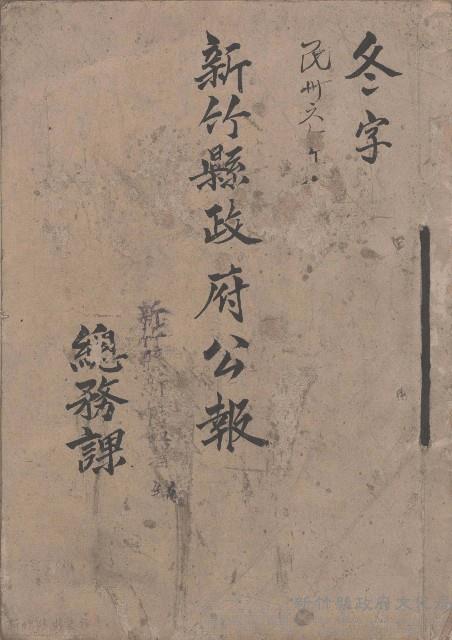 冬字
民卅六
新竹縣政府公報
總務課
新竹縣政府文化局